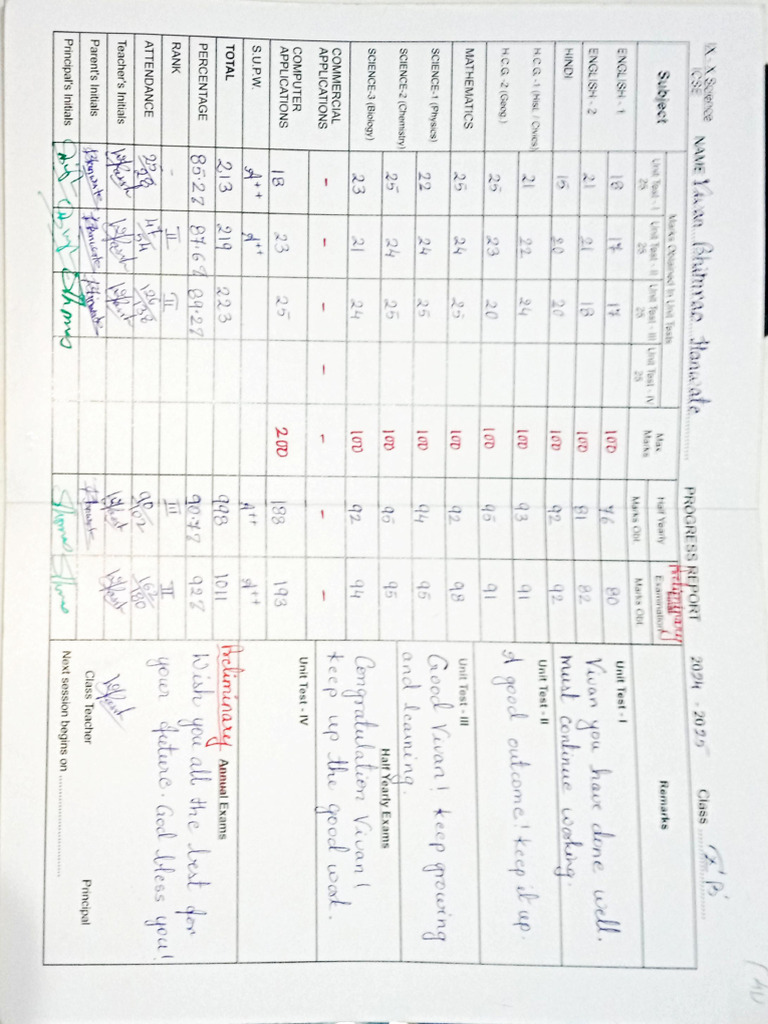 IX - X Science NAME Vivan Bhimrao Hanwate PROGRESS REPORT 2024 - 2025 Class X 'B'
ICSE
Subject Marks Obtained in Unit Tests Max Marks Half Yearly Marks Obt. Preliminary Examination Marks Obt. Remarks
Unit Test - I 25 Unit Test - II 25 Unit Test - III 25 Unit Test - IV 25
ENGLISH - 1 18 17 17 100 76 80
ENGLISH - 2 21 21 18 100 81 82
HINDI 15 20 20 100 92 92
H.C.G. -1 (Hist. / Civics) 21 22 24 100 93 91
H.C.G. -2 (Geog.) 25 23 20 100 95 91
MATHEMATICS 25 24 25 100 92 98
SCIENCE-1 (Physics) 22 24 25 100 94 95
SCIENCE-2 (Chemistry) 25 24 25 100 95 95
SCIENCE-3 (Biology) 23 21 24 100 92 94
COMMERCIAL APPLICATIONS - - - - - - -
COMPUTER APPLICATIONS 18 23 25 200 188 193
S.U.P.W. A++ A++ A++ A++
TOTAL 213 219 223 998 1011
PERCENTAGE 85.2% 87.6% 89.2% 90.7% 92%
RANK - II II III II
ATTENDANCE
Teacher's Initials
Parent's Initials
Principal's Initials
Unit Test - I
Vivan you have done well.
Must continue working.
Unit Test - II
A good outcome! Keep it up.
Unit Test - III
Good Vivan! Keep growing
and learning.
Half Yearly Exams
Congratulation Vivan!
Keep up the good work.
Unit Test - IV
Preliminary Annual Exams
Wish you all the best for
your future. God bless you!
Class Teacher Principal
Next session begins on ....................